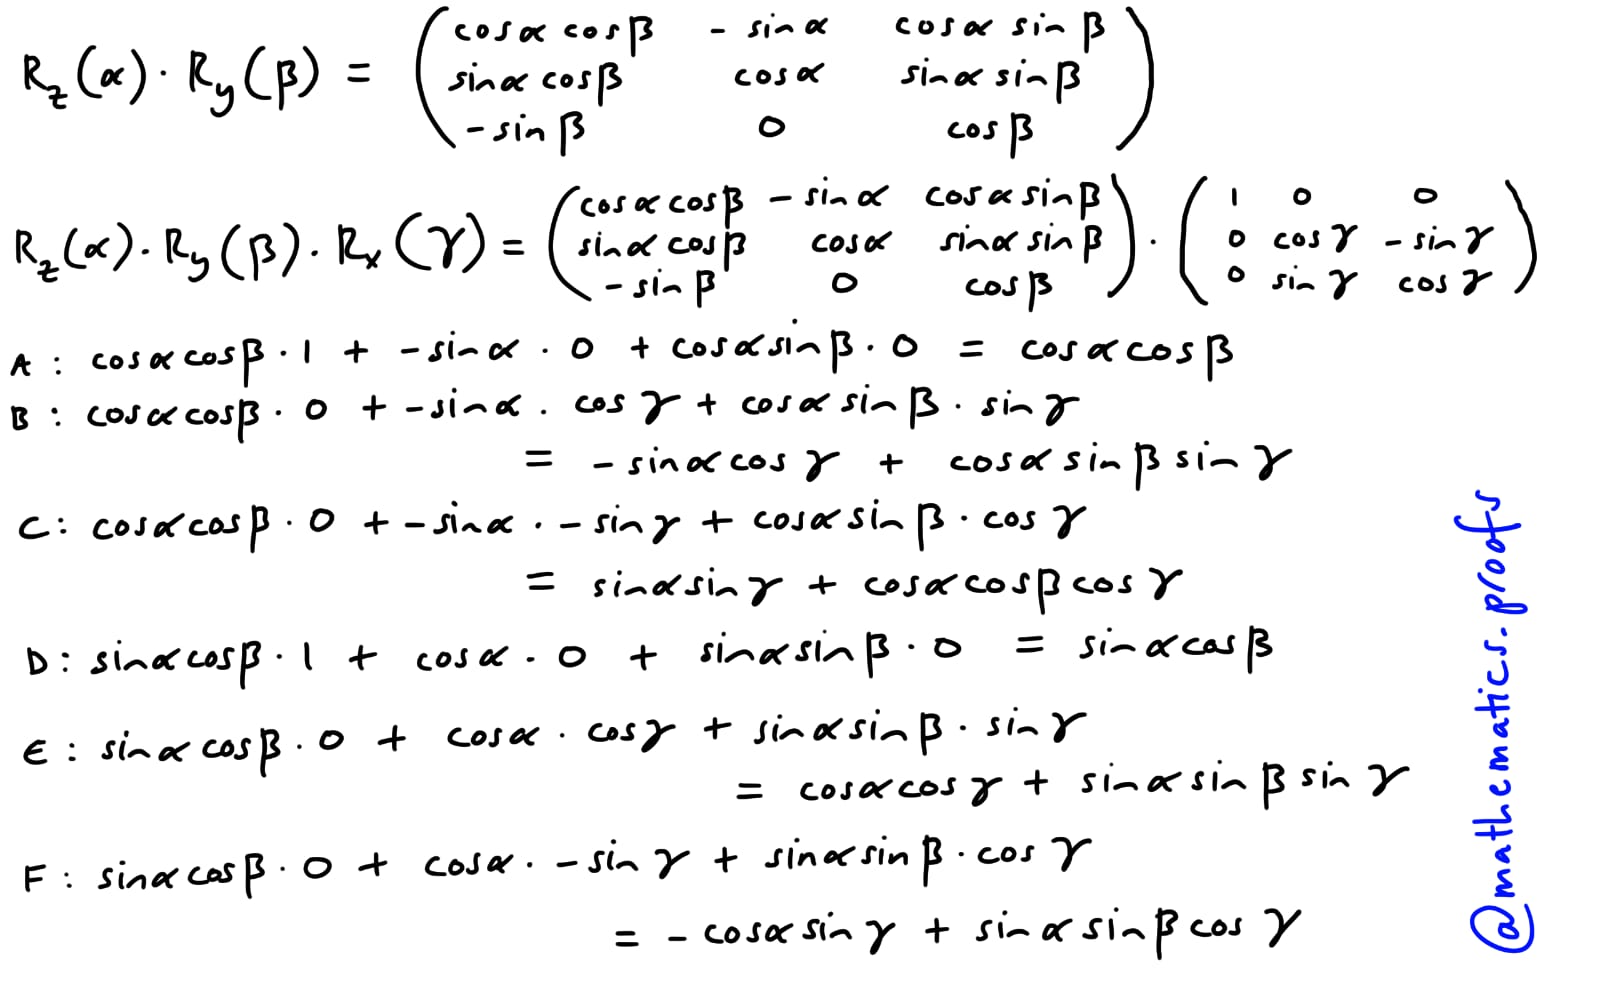 R_z(α) · R_y(β) = ( cosα cosβ  - sinα  cosα sinβ
sinα cosβ  cosα  sinα sinβ
-sinβ  0  cosβ )
R_z(α) · R_y(β) · R_x(γ) = ( cosα cosβ  - sinα  cosα sinβ ) · ( 1  0  0
sinα cosβ  cosα  sinα sinβ  0  cosγ  - sinγ
- sinβ  0  cosβ  0  sinγ  cosγ )
A : cosα cosβ · 1 + -sinα · 0 + cosα sinβ · 0 = cosα cosβ
B : cosα cosβ · 0 + -sinα · cosγ + cosα sinβ · sinγ
= - sinα cosγ + cosα sinβ sinγ
C : cosα cosβ · 0 + -sinα · - sinγ + cosα sinβ · cosγ
= sinα sinγ + cosα cosβ cosγ
D : sinα cosβ · 1 + cosα · 0 + sinα sinβ · 0 = sinα cosβ
E : sinα cosβ · 0 + cosα · cosγ + sinα sinβ · sinγ
= cosα cosγ + sinα sinβ sinγ
F : sinα cosβ · 0 + cosα · - sinγ + sinα sinβ · cosγ
= - cosα sinγ + sinα sinβ cosγ
@mathematics.proofs